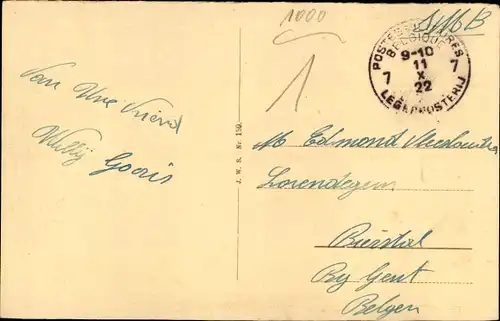 1000
S.M.B
POSTES MILITAIRES
BELGIQUE
9-10
11
X
22
7 7
LEGERPOSTERIJ
1
Van Uwe Vriend
Willy Goaris
J. W. B. Nr. 159.
M Edmond
Lovendegem
Bierstal
By Gent
Belgen